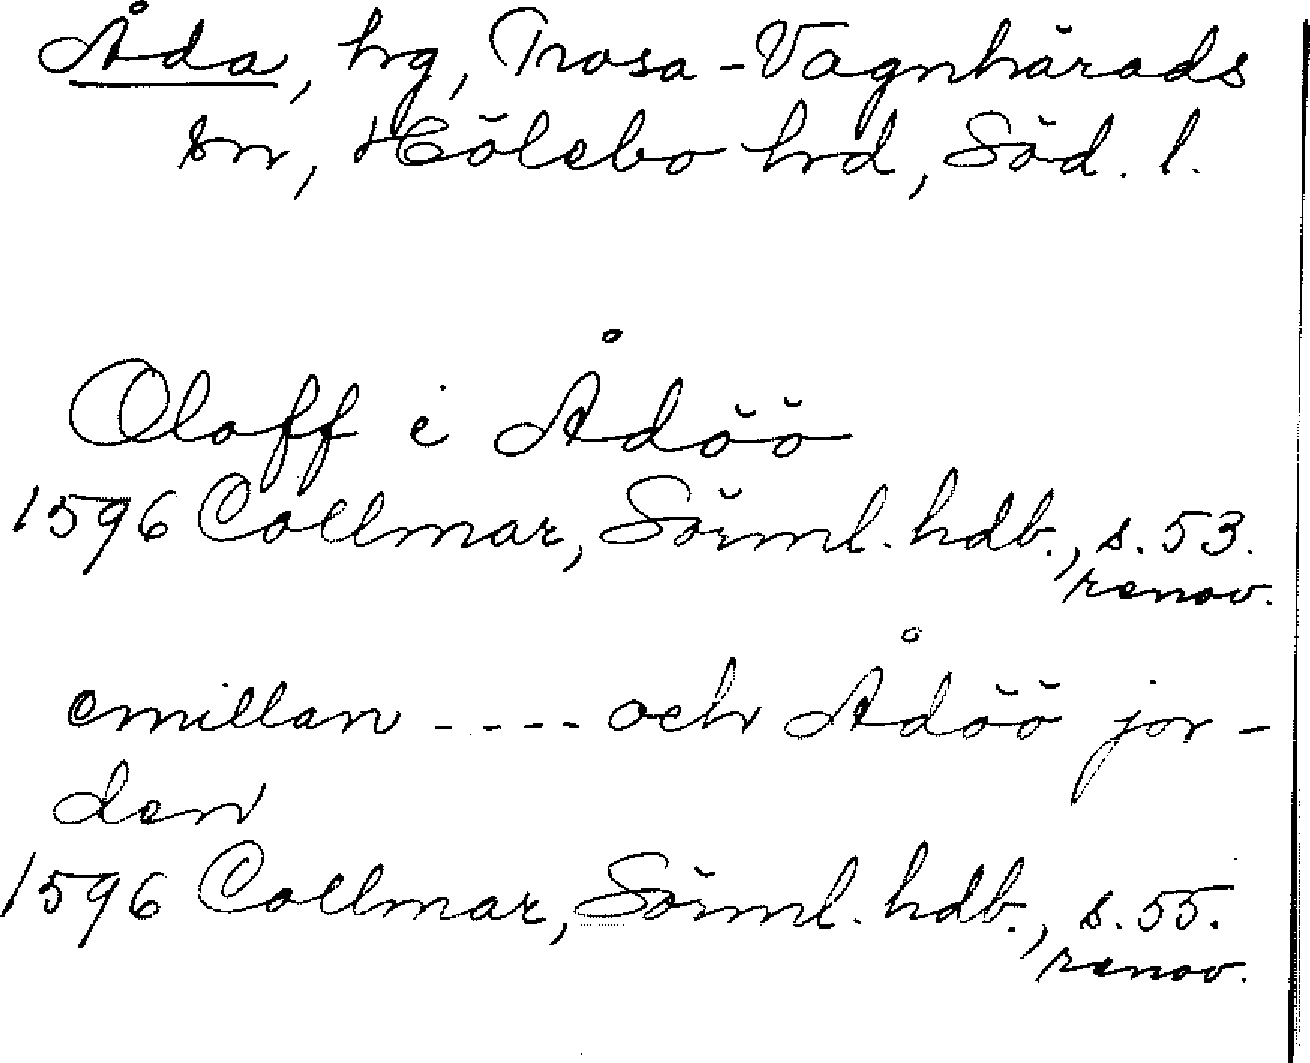 Åda, hg, Trosa-Vagnhärads
sn, Hölebo hrd, Söd. l.
Oloff i Ådöö
1596 Collmar, Sörml. hdb., s. 53.
renov.
emillan ---- och Ådöö jor-
den
1596 Collmar, Sörml. hdb., s. 55.
renov.